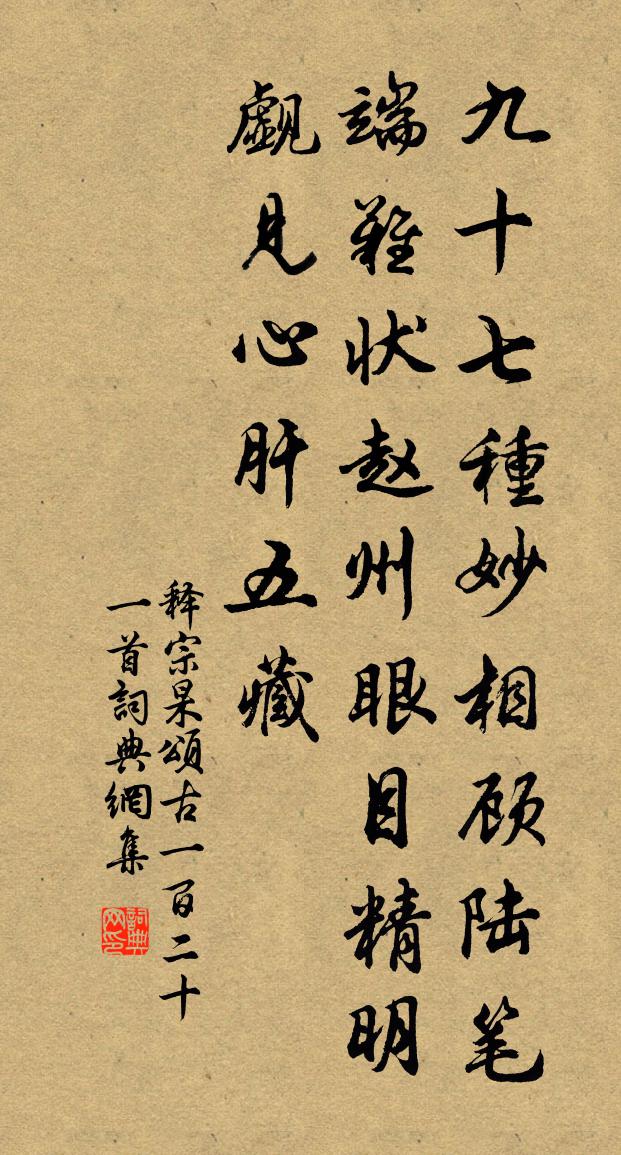 九十七種妙相顾陆笔
端難状赵州眼目精明
觑見心肝五藏
释宗杲頌古一百二十
一首詞典網集
詞典网印